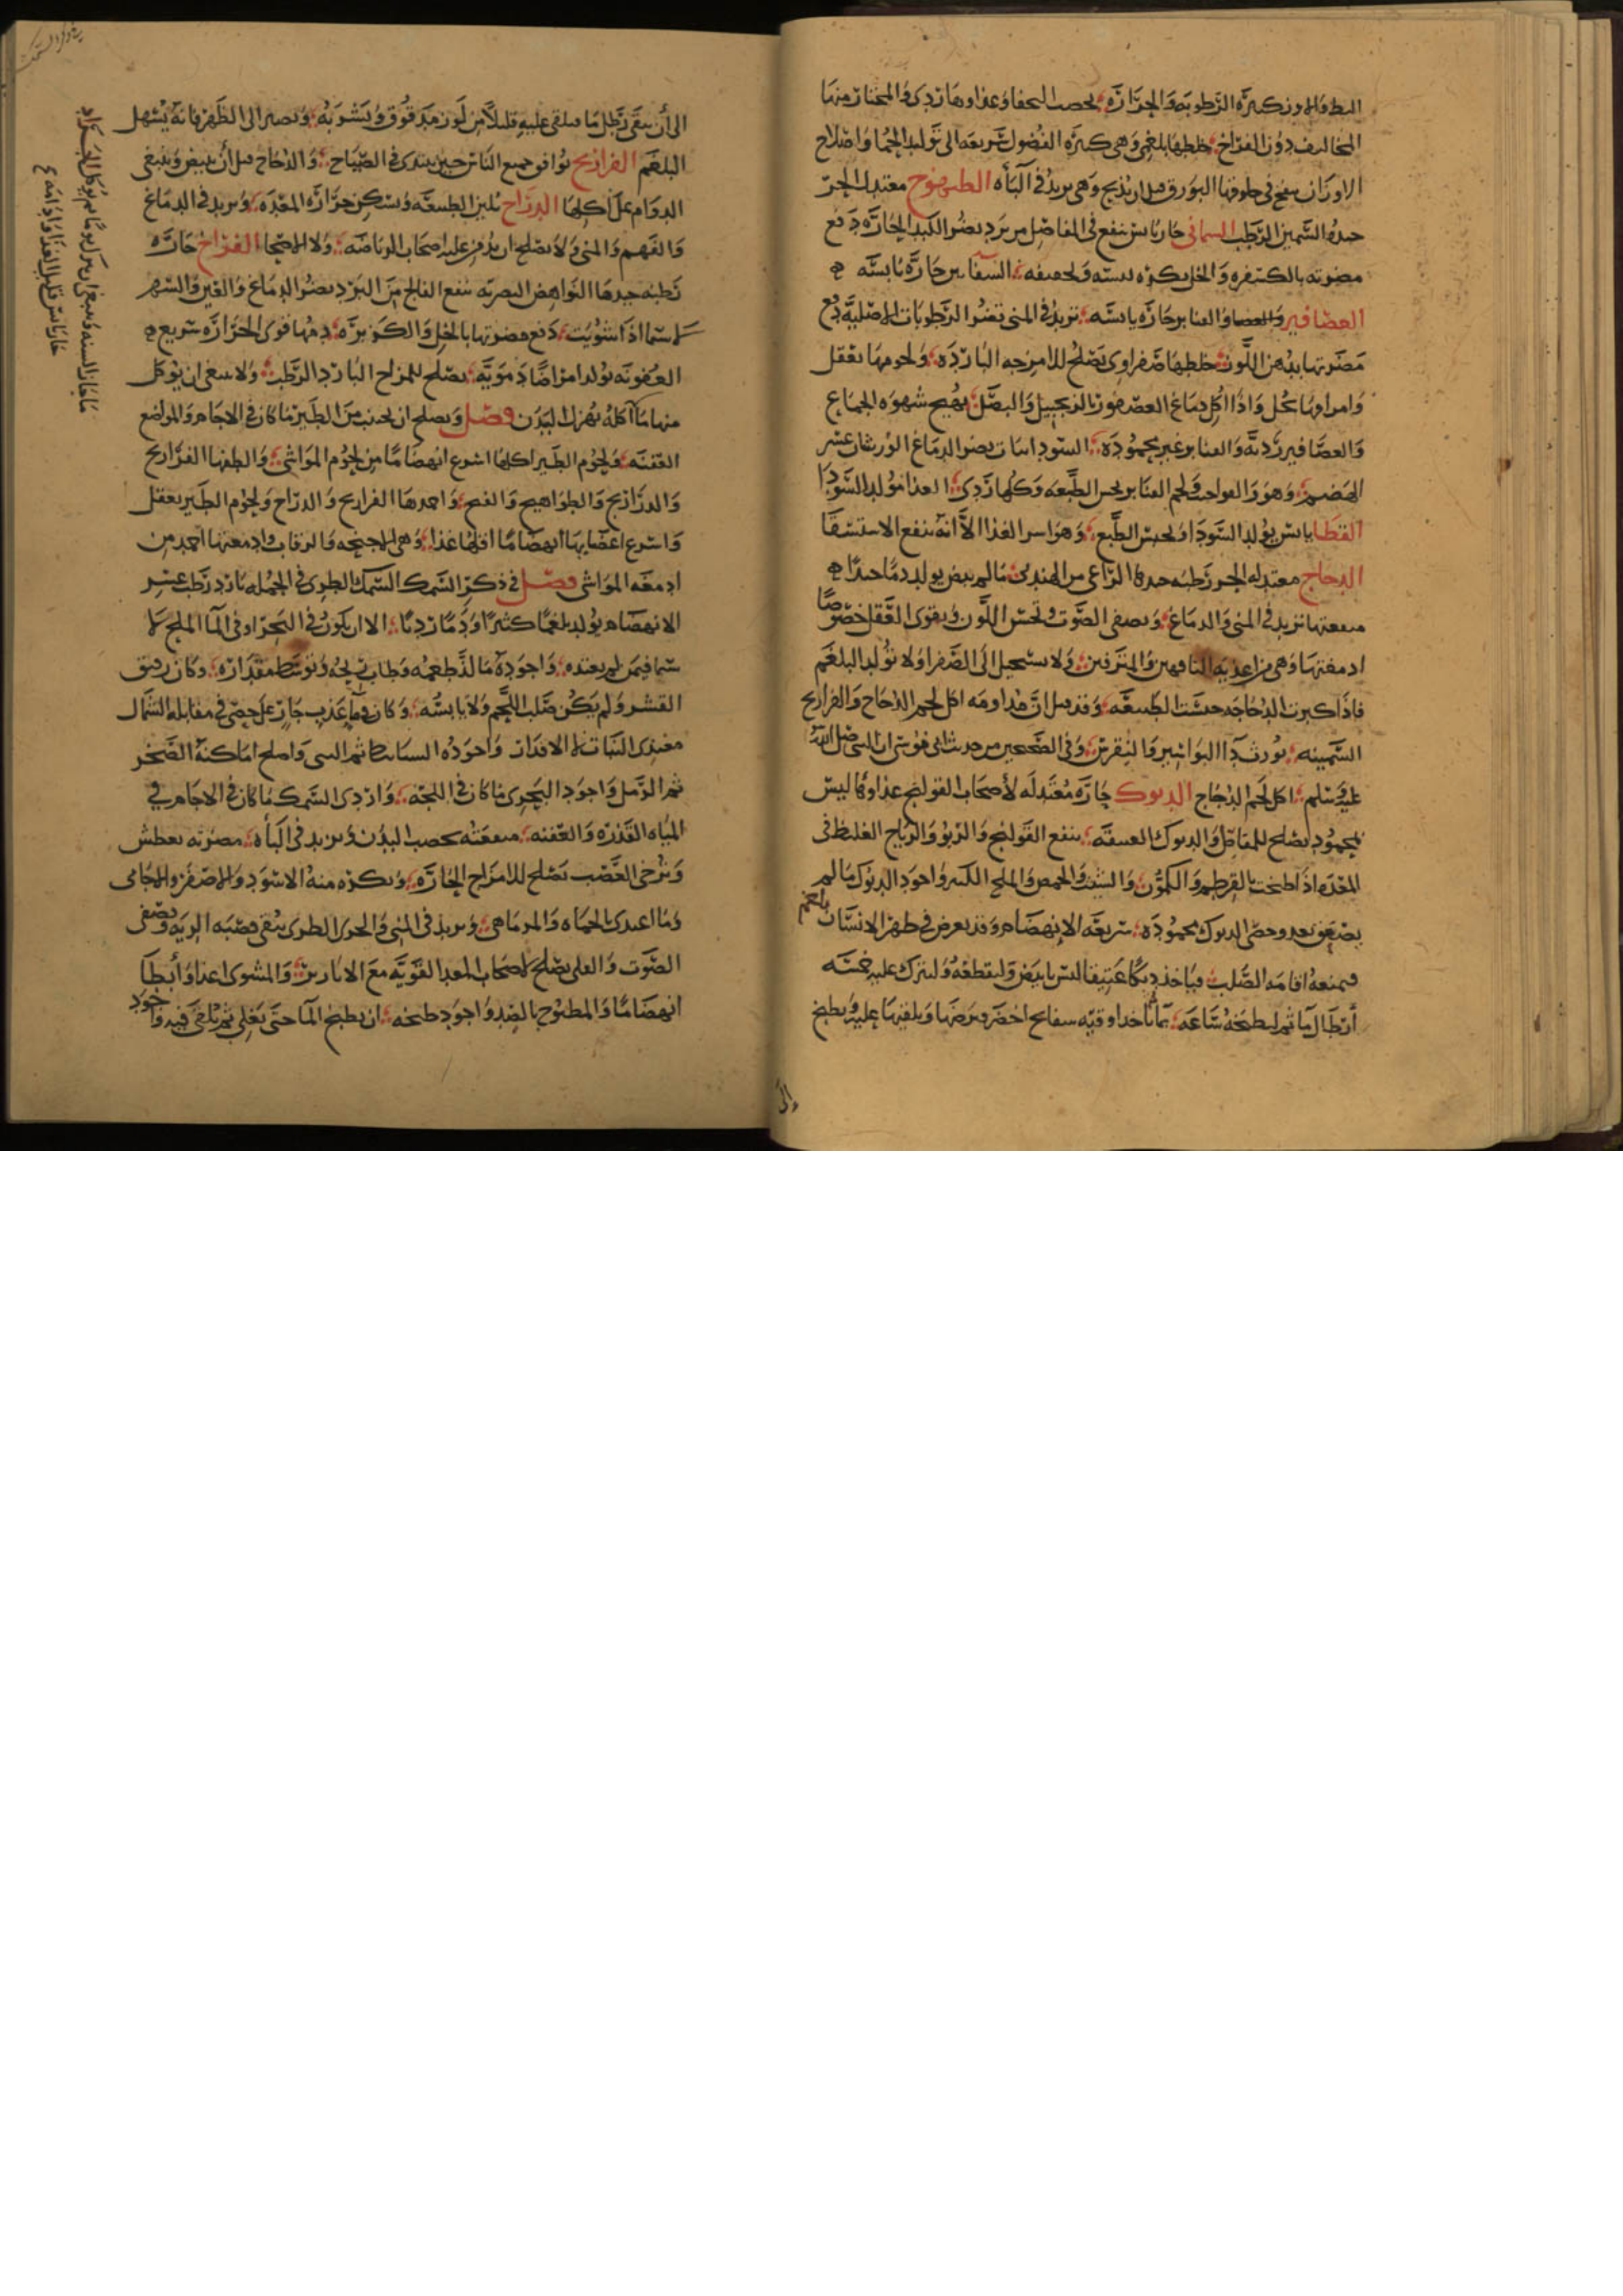 البط والاوز كثيرة الرطوبة والحرارة يخصب النحفاء وغذاوها ردى والمختار منها
المخاليف دون الفراخ خلطها بلغمى وهى كثيرة الفضول سريعه الى توليد الحما واصلاح
الاوز ان ينفخ فى حلوقها البورق قبل ان يذبح وهى يزيد فى الباه الطيهوج معتدل الحر
جيده السمين الرطب السمانى حار يابس ينفع فى المفاصل من برد يضر الكبد الحارة دفع
مضرته بالكسفره والخل يكره لبيسه
العصافير والقنابر حارة يابسة تزيد فى المنى تضر الرطوبات الاصلية دفع
مضرتها بدهن اللوز خلطها صفراوى تصلح للامزجه الباردة ولحومها تعقل
وامراقها تحل واذا اكل دماغ العصفور بالزنجبيل والبصل يهيج شهوه الجماع
والعصافير ردية والقنابر غير محمودة السودانيات يضر الدماغ الورشان عسر
الهضم وهو والفواخت ولحم القنابر يحبس الطبيعه وكلها ردى الغذا مولد السودا
القطا يابس يولد السودا ويحبس الطبع وهو اسر الغذا الا انه ينفع الاستسقا
الدجاج معتدله الحر رطبه جيدها الراعى من الهندى مالم يبيض يولد دما جيدا
منفعتها تزيد فى المنى والدماغ ويصفى الصوت وتحسن اللون ويقوى العقل خصوصا
ادمغتها وهى من اغذيه الناقهين والمترفين ولا يستحيل الى الصفرا ولا تولد البلغم
فاذا كبرت الدجاجه حبست الطبيعة وقد قيل ان مداومه اكل لحم الدجاج والفراريج
السمينه يورث دا البواسير والنقرس وفى الصحيحين من حديث ابى موسى ان النبى صلى الله
عليه وسلم اكل لحم الدجاج الديوك حارة معتدله لأصحاب القولنج غذاوها ليس
بمحمود يصلح للمفاصل والديوك العتيقة ينفع القولنج والربو والرياح الغليظ فى
المعده اذا طبخت بالقرطم والكمون والشبت والحمص والملح الكثير واجود الديوك مالم
يصقع بعد وخصى الديوك محمودة سريعة الانهضام وقد يعرض فى ظهر الانسان بلغم
فيمنعه اقامه الصلب فياخذ ديكا عتيقا ليس بابيض وليقطعه وليترك عليه خمسه
أرطال ما ثم ليطبخه ساعه ياخذ اوقيه سفايج اخضر ويلقيها عليه ويطبخ
الى
الى أن يبقى رطل ما فيلقى عليه قليلا من لوز مدقوق ويشربه ويصير الى الظهر فانه يسهل
البلغم الفراريج توافق جميع الناس حين يبتدى فى الصياح والدجاج قبل أن يبيض وينبغى
الدوام على اكلها الدراج تلين الطبيعة ويسكن حرارة المعدة ويزيد فى الدماغ
والفهم والمنى ولا يصلح ان يدمن عليه اصحاب الرياضه ولا الاصحا الفراخ حارة
رطبه جيدها النواهض البصريه ينفع الفالج من البرد يضر الدماغ والعين والسهر
لاسيما اذا شويت دفع مضرتها بالخل والكزبرة دمها قوى الحرارة سريع
العفونه يولد امراضا دموية يصلح للمزاج البارد الرطب ولا ينبغى ان يؤكل
منها ما اكله يهزل البدن فصل ويصلح ان يجتنب من الطير ما كان فى الاجام والمواضع
العفنه ولحوم الطير اكلها اسرع انهضاما من لحوم المواشى والطفها الفراريج
والدراريج والطواهيج والقبج واحمدها الفراريج والدراج ولحوم الطير تعقل
واسرع اعضايها انهضاما اقلها غذا وهى الاجنحه والرقاب وادمغتها احمد من
ادمغه المواشى فصل فى ذكر السمك السمك الطرى فى الجمله بارد رطب عسر
الانهضام يولد بلغما كثيرا ودما رديا الا ان يكون فى البحر او فى الما الملح لا
سيما فيمن لم يعتده واجوده ما لذ طعمه وطاب ريحه وتوسط مقداره وكان رقيق
القشر ولم يكن صلب اللحم ولا يابسه وكان فى ما عذب جار على حصى فى مقابله الشمال
مغتذى النبات لا الاقذار واجوده ثم البنى واصلح اماكنه الصخر
ثم الرمل واجود البحرى ما كان فى اللجة واردى السمك ما كان فى الاجام فى
المياه القذره والعفنه منفعته يخصب البدن ويزيد فى الباه مضرته يعطش
ويرخى العصب تصلح للامزاج الحارة ويكره منه الاسود والاصفر والاجامى
وما اغتذى بالحماه والمرماهى ويزيد فى المنى والجرى الطرى ينقى قصبه الريه ويصفى
الصوت والقلى يصلح لاصحاب المعد القوية مع الابازير والمشوى اغذا وأبطا
انهضاما والمطبوخ بالضد واجود طبخه ان يطبخ الما حتى يغلى ثم يلقى فيه واجود
ماجاز السنه
حار يابس قليل الغذا وادامه